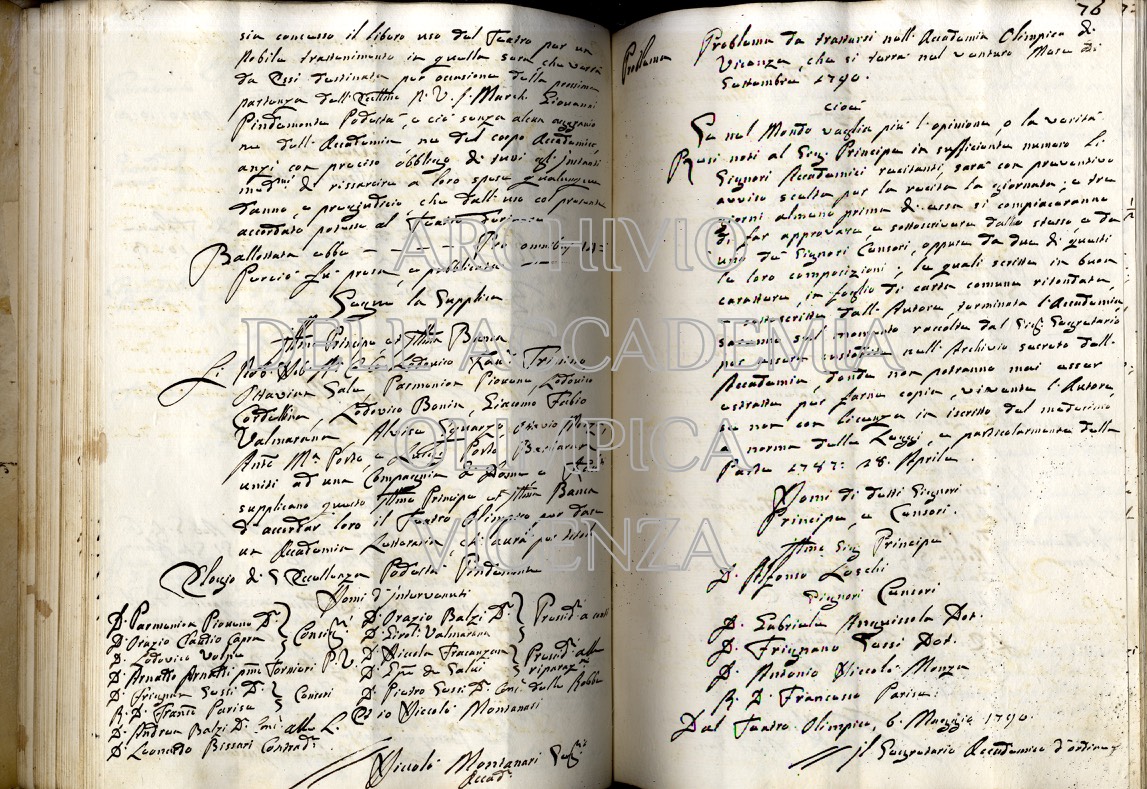 sia concesso il libero uso del Teatro per un
Nobile trattenimento in quella sera, che verrà
da Essi destinata per occasione della prossima
partenza dell' Eccellmo N. V. f. March. Giovanni
Pindemonte Podestà, e ciò senza alcun aggravio
ne dell' Accademia, ne del corpo Accademico,
anzi con preciso obbligo di tutti gl' Instanti
medmi di rissarcire a loro spese qualunque
danno, e pregiudicio che dall' uso col presente
accordato potesse al Teatro
Ballottata ebbe — Pro omnibus
Perciò fu presa, e pubblicata
Segue la Supplica
Illmo Principe et Illma Banca
Lodovico Kavr Trissino
Ottavian Sale, Parmenion Piovene, Lodovico
Cordellina, Lodovico Bonin, Giacomo Fabio
Valmarana, Alvise Squarzo, Ottavio
Antº Mª Porto, e Porto Barbaran
uniti ad una Compagnia di Dame e
supplicano questo Illmo Principe et Illma Banca
d' accordar loro il Teatro Olimpico per dare
un Accademia Letteraria, ch' avrà per
Elogio di S. Eccellenza Podestà Pindemonte
Nomi d' intervenuti
D. Parmenion Piovene Dr. D. Orazio Balzi Dr. Presidi ai conti
D. Orazio Claudio Capra Consigri D. Girolº Valmarana
D. Lodovico Volpe D. Niccola Fracanzan Presidi alle
D. Arnaldo Arnaldi pmo Tornieri P. V. D. de Salvi riparazi
D. Frignan Sessi Dr. Censori D. Pietro Sessi Dr. delle Robbe
R. D. Francº Parise Co: Niccolò Montanari
D. Andrea Balzi Dr. alle L.
D. Leonardo Bissari Contrad.
Niccolò Montanari Segrio
Accadº
76
Problema
Problema da trattarsi nell' Accademia Olimpica di
Vicenza, che si terrà nel venturo Mese di
Settembre 1790.
cioè
Se nel Mondo vaglia più l' opinione, o la verità.
Resi noti al Sig. Principe in sufficiente numero li
Signori Accademici recitanti, sarà con preventivo
avviso scelta per la recita la giornata; e tre
giorni almeno prima di essa si compiaceranno
di far approvare, e sottoscrivere dallo stesso, e da
uno de' Signori Censori, oppure da due di questi
le loro composizioni, le quali scritte in buon
carattere, in foglio di carta comune ritondata,
e sottoscritte dall' Autore, terminata l' Accademia,
saranno sul momento raccolte dal Sig. Segretario,
per essere custodite nell' Archivio secreto dell'
Accademia, donde non potranno mai esser
estratte per farne copia, vivente l' Autore,
se non con licenza in iscritto del medesimo,
a norma delle Leggi, e particolarmente della
Parte 1787: 28. Aprile.
Nomi di detti Signori
Principe, e Censori.
Illmo Sig. Principe
D. Alfonso Loschi
Signori Censori
D. Gabriele Anguissola Dot.
D. Frignano Sessi Dot.
D. Antonio Niccolò Monza
R. D. Francesco Parise.
Dal Teatro Olimpico, 6. Maggio 1790.
Il Segretario Accademico d' ordine
ARCHIVIO
DELL'ACCADEMIA
OLIMPICA
VICENZA